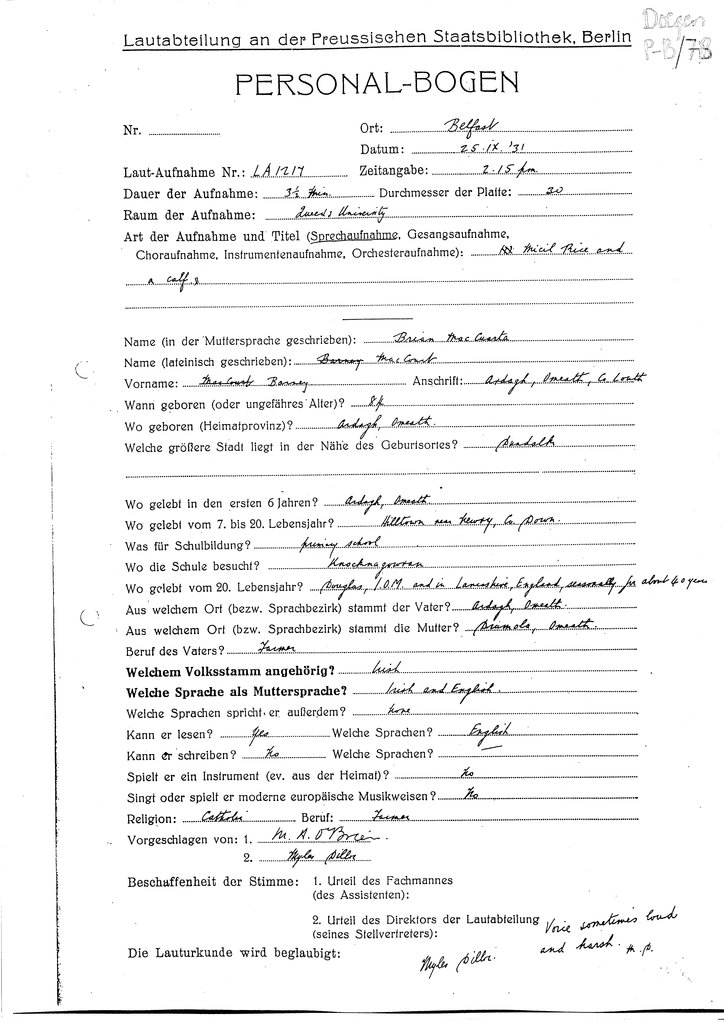 Doegen
P-B/78
Lautabteilung an der Preussischen Staatsbibliothek, Berlin
PERSONAL-BOGEN
Nr.
Ort: Belfast
Datum: 25.IX.'31
Laut-Aufnahme Nr.: LA1217 Zeitangabe: 2.15 pm
Dauer der Aufnahme: 3½ min. Durchmesser der Platte: 30
Raum der Aufnahme: Queen's University
Art der Aufnahme und Titel (Sprechaufnahme, Gesangsaufnahme,
Choraufnahme, Instrumentenaufnahme, Orchesteraufnahme): Micil Price and
a calf.
Name (in der Muttersprache geschrieben): Brian Mac Cuarta
Name (lateinisch geschrieben): Barney MacCourt
Vorname: MacCourt Barney Anschrift: Ardagh, Omeath, Co. Louth
Wann geboren (oder ungefähres Alter)?
Wo geboren (Heimatprovinz)? Ardagh, Omeath.
Welche größere Stadt liegt in der Nähe des Geburtsortes? Dundalk
Wo gelebt in den ersten 6 Jahren? Ardagh, Omeath
Wo gelebt vom 7. bis 20. Lebensjahr? Hilltown near Newry, Co. Down.
Was für Schulbildung? primary school
Wo die Schule besucht? Knocknagowran
Wo gelebt vom 20. Lebensjahr? Douglas, I.O.M. and in Lancashire, England, seasonally for about 40 years
Aus welchem Ort (bezw. Sprachbezirk) stammt der Vater? Ardagh, Omeath.
Aus welchem Ort (bzw. Sprachbezirk) stammt die Mutter? Omeath.
Beruf des Vaters? Farmer
Welchem Volksstamm angehörig? Irish
Welche Sprache als Muttersprache? Irish and English.
Welche Sprachen spricht er außerdem? None
Kann er lesen? Yes Welche Sprachen? English
Kann er schreiben? No Welche Sprachen? —
Spielt er ein Instrument (ev. aus der Heimat)? No
Singt oder spielt er moderne europäische Musikweisen? No
Religion: Catholic Beruf: Farmer
Vorgeschlagen von: 1. M. A. O'Brien.
2. Myles Dillon
Beschaffenheit der Stimme: 1. Urteil des Fachmannes
(des Assistenten):
2. Urteil des Direktors der Lautabteilung Voice sometimes loud
(seines Stellvertreters): and harsh. M.D.
Die Lauturkunde wird beglaubigt: Myles Dillon.